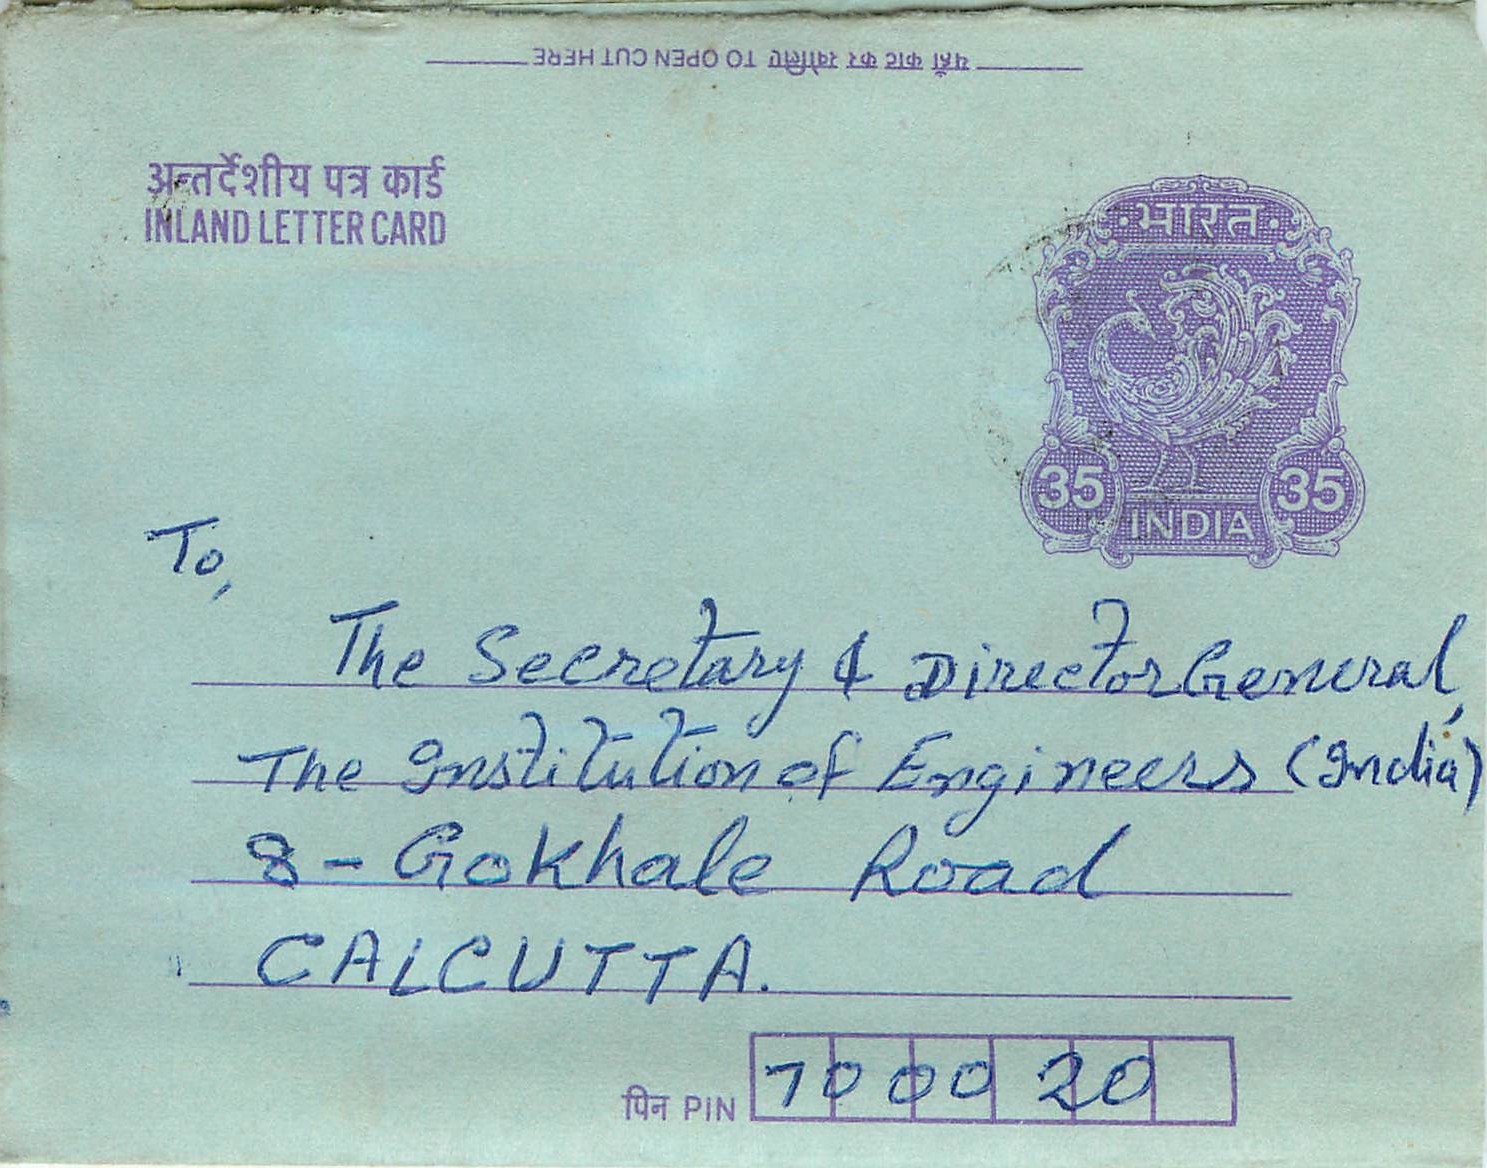 यहाँ काट कर खोलिए TO OPEN CUT HERE
अन्तर्देशीय पत्र कार्ड
INLAND LETTER CARD
•भारत•
35 35
INDIA
To,
The Secretary & Director General,
The Institution of Engineers (India)
8 - Gokhale Road
CALCUTTA.
पिन PIN 700020